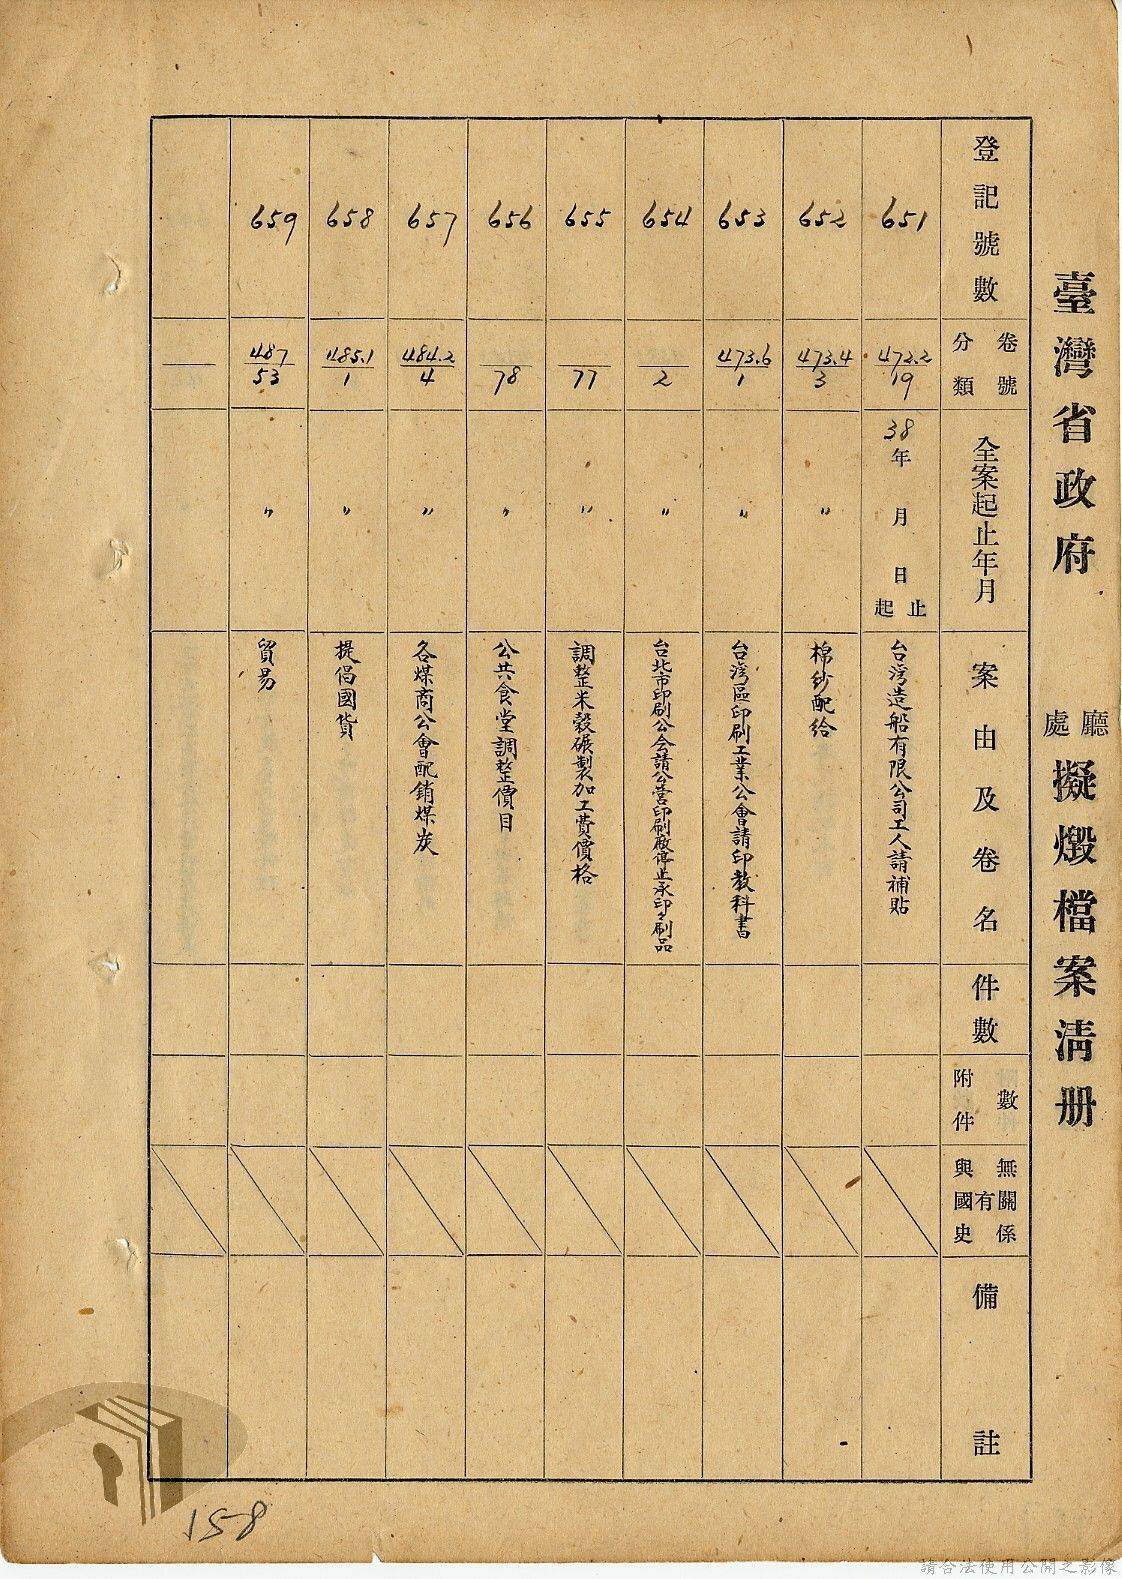 臺灣省政府 廳處 擬燬檔案清册
登記號數
卷號
分類
全案起止年月
案由及卷名
件數
附件數
與國史有無關係
備註
651
473.2
19
38年 月 日 起止
台灣造船有限公司工人請補貼
652
473.4
3
〃
棉紗配給
653
473.6
1
〃
台灣區印刷工業公會請印教科書
654
2
〃
台北市印刷公会請公營印刷廠停止承印刷品
655
77
〃
調整米穀碾製加工費價格
656
78
〃
公共食堂調整價目
657
484.2
4
〃
各煤商公會配銷煤炭
658
485.1
1
〃
提倡國貨
659
487
53
〃
貿易
158
請合法使用公開之影像